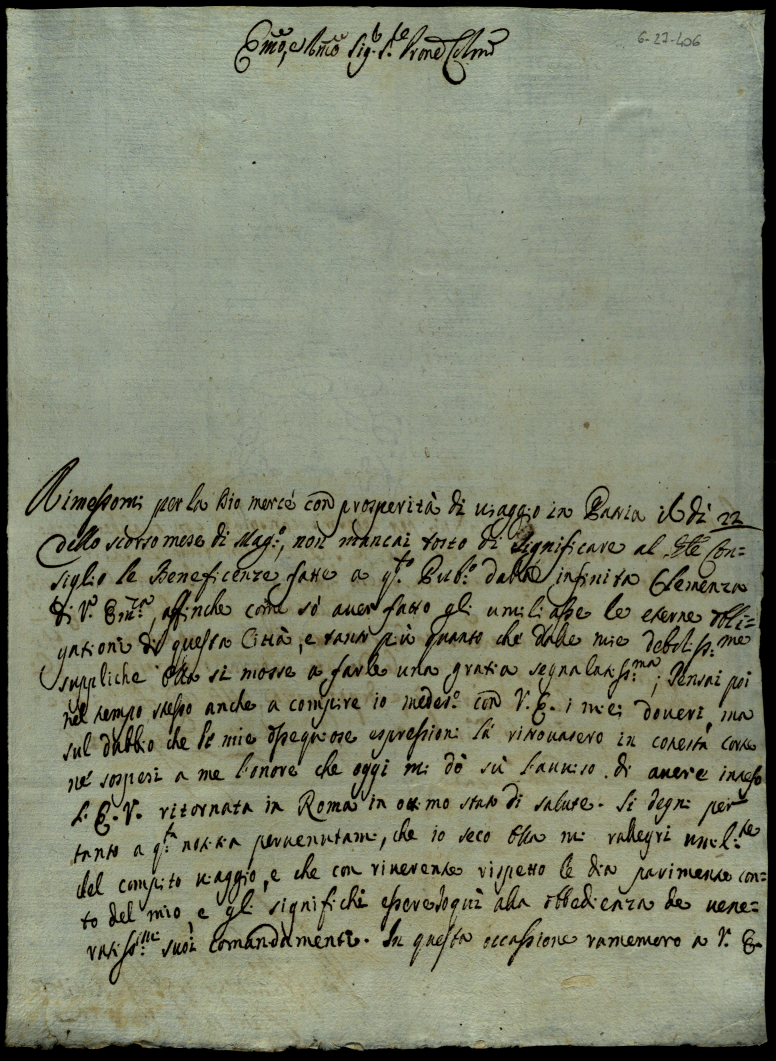 Emo, e Rmo Sig.r Sig.re Prone Colmo
6-27-406
Rimessomi per la Dio mercè con prosperità di viaggio in Patria il dì 22
dello scorso mese di Mag.o, non mancai tosto di significare al Con-
siglio le Beneficenze fatte a q.to Pub.o dalla infinita Clemenza
di V.a Em.za, affinche come sò aver fatto gli umiliasse le eterne obli-
gationi di questa Città, e tanto più quanto che dalle mie debolis.me
suppliche Ella si mosse a farle una gratia segnalatiss.ma; Pensai poi
nel tempo stesso anche a compire io medes.o con V. E. i miei doveri, ma
sul dubbio che le mie ossequiose espressioni la ritrovassero in cotestà corte
nè sospesi a me l'onore che oggi mi dò sù l'avviso di avere inteso
l'E. V. ritornata in Roma in ottimo stato di salute. Si degni per
tanto a q.ta notitia pervenutami, che io seco Ella mi rallegri umil.te
del compito viaggio, e che con riverente rispetto le dia parimente con-
to del mio, e gli significhi essere quì alla obbedienza de vene-
ratiss.mi suoi comandamenti. In questa occassione ramemoro a V. E.